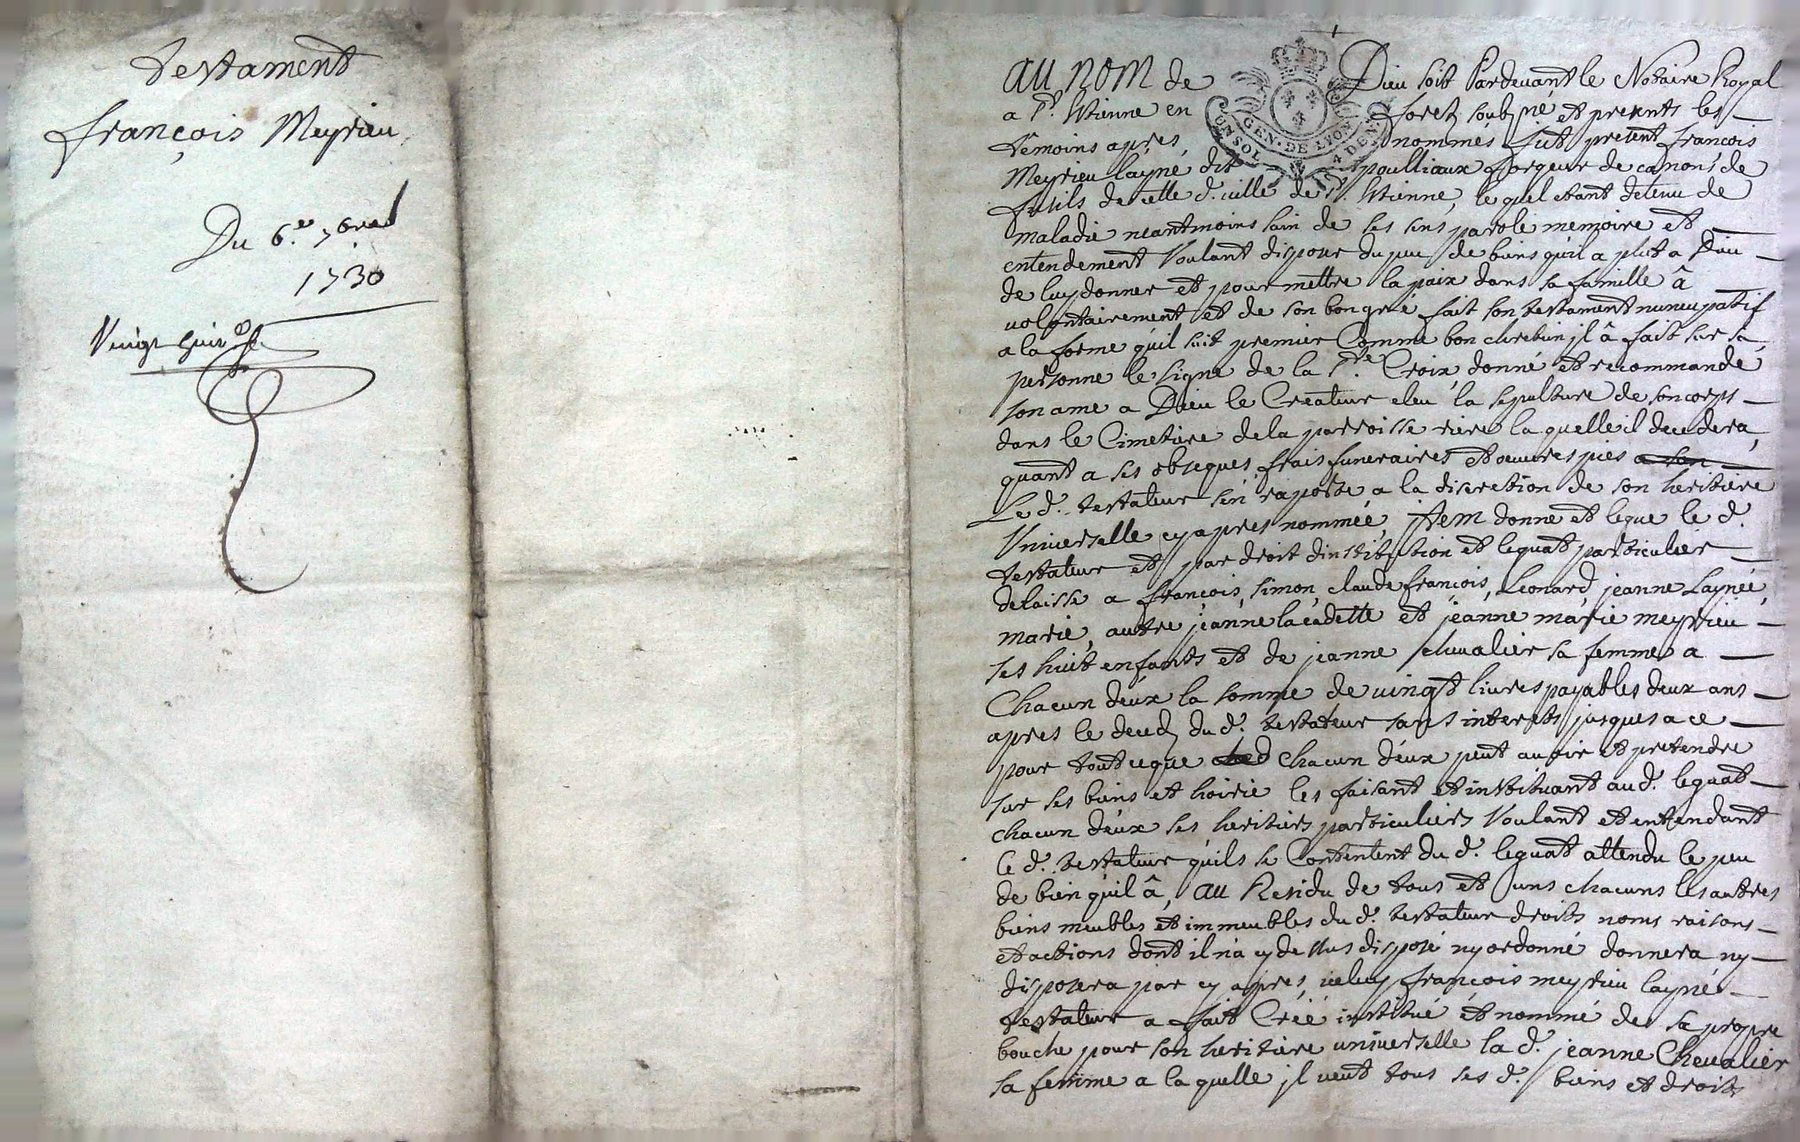 Testament
françois Meyrieu
Du 6.e 7bre
1730
Vingt huit
AU NOM de Dieu soit Pardevant le Notaire Royal
a St. Etienne en forez soubz.né et presents les
temoins apres nommés fut present françois
Meyrieu layné dit poulliaux forgeur de canons de
fusils de cette d. ville de St. Etienne, lequel etant detenu de
maladie neantmoins sain de ses sens parole memoire et
entendement Voulant disposer du peu de biens qu'il a plut a Dieu
de luy donner et pour mettre la paix dans sa famille â
volontairement et de son bon gré fait son testament nuncupatif
a la forme qu'il suit premier Comme bon chretien jl â fait sur sa
personne le signe de la Ste. Croix donné et recommandé
son ame a Dieu le Createur eleu la sepulture de son corps
dans le Cimetiere de la parroisse riere la quelle il decedera,
quant a ses obseques frais funeraires et oeuvres pies a son
Le d. testateur s'en raporte a la discretion de son heritiere
Universelle cy apres nommée, Item donne et legue le d.
testateur et par droit d'institution et leguat particulier
delaisse a françois, simon, claude françois, Leonard, jeanne Laynée,
marie, autre jeanne la cadette et jeanne marie meyrieu
ses huit enfants et de jeanne chevalier sa femme a
Chacun d'eux la somme de vingt livres payables deux ans
apres le deced du d. testateur sans interets jusques a ce
pour tout ce que chacun d'eux peut avoir et pretendre
sur ses biens et hoirie les faisant et instituant au d. leguat
chacun d'eux ses heritiers particuliers Voulant et entendant
le d. testateur qu'ils se Contentent du d. leguat attendu le peu
de bien qu'il â, AU Residu de tous et uns chacuns les autres
biens meubles et immeubles du d. testateur droits noms raisons
et actions dont il n'a cy dessus disposé ny ordonné donnera ny
disposera par cy apres, iceluy françois meyrieu layné
testateur a fait Créé institué et nommé de sa propre
bouche pour son heritiere universelle la d. jeanne Chevalier
sa femme a la quelle jl veut tous ses d. biens et droits
GEN. DE LYON
UN SOL
4 DEN.